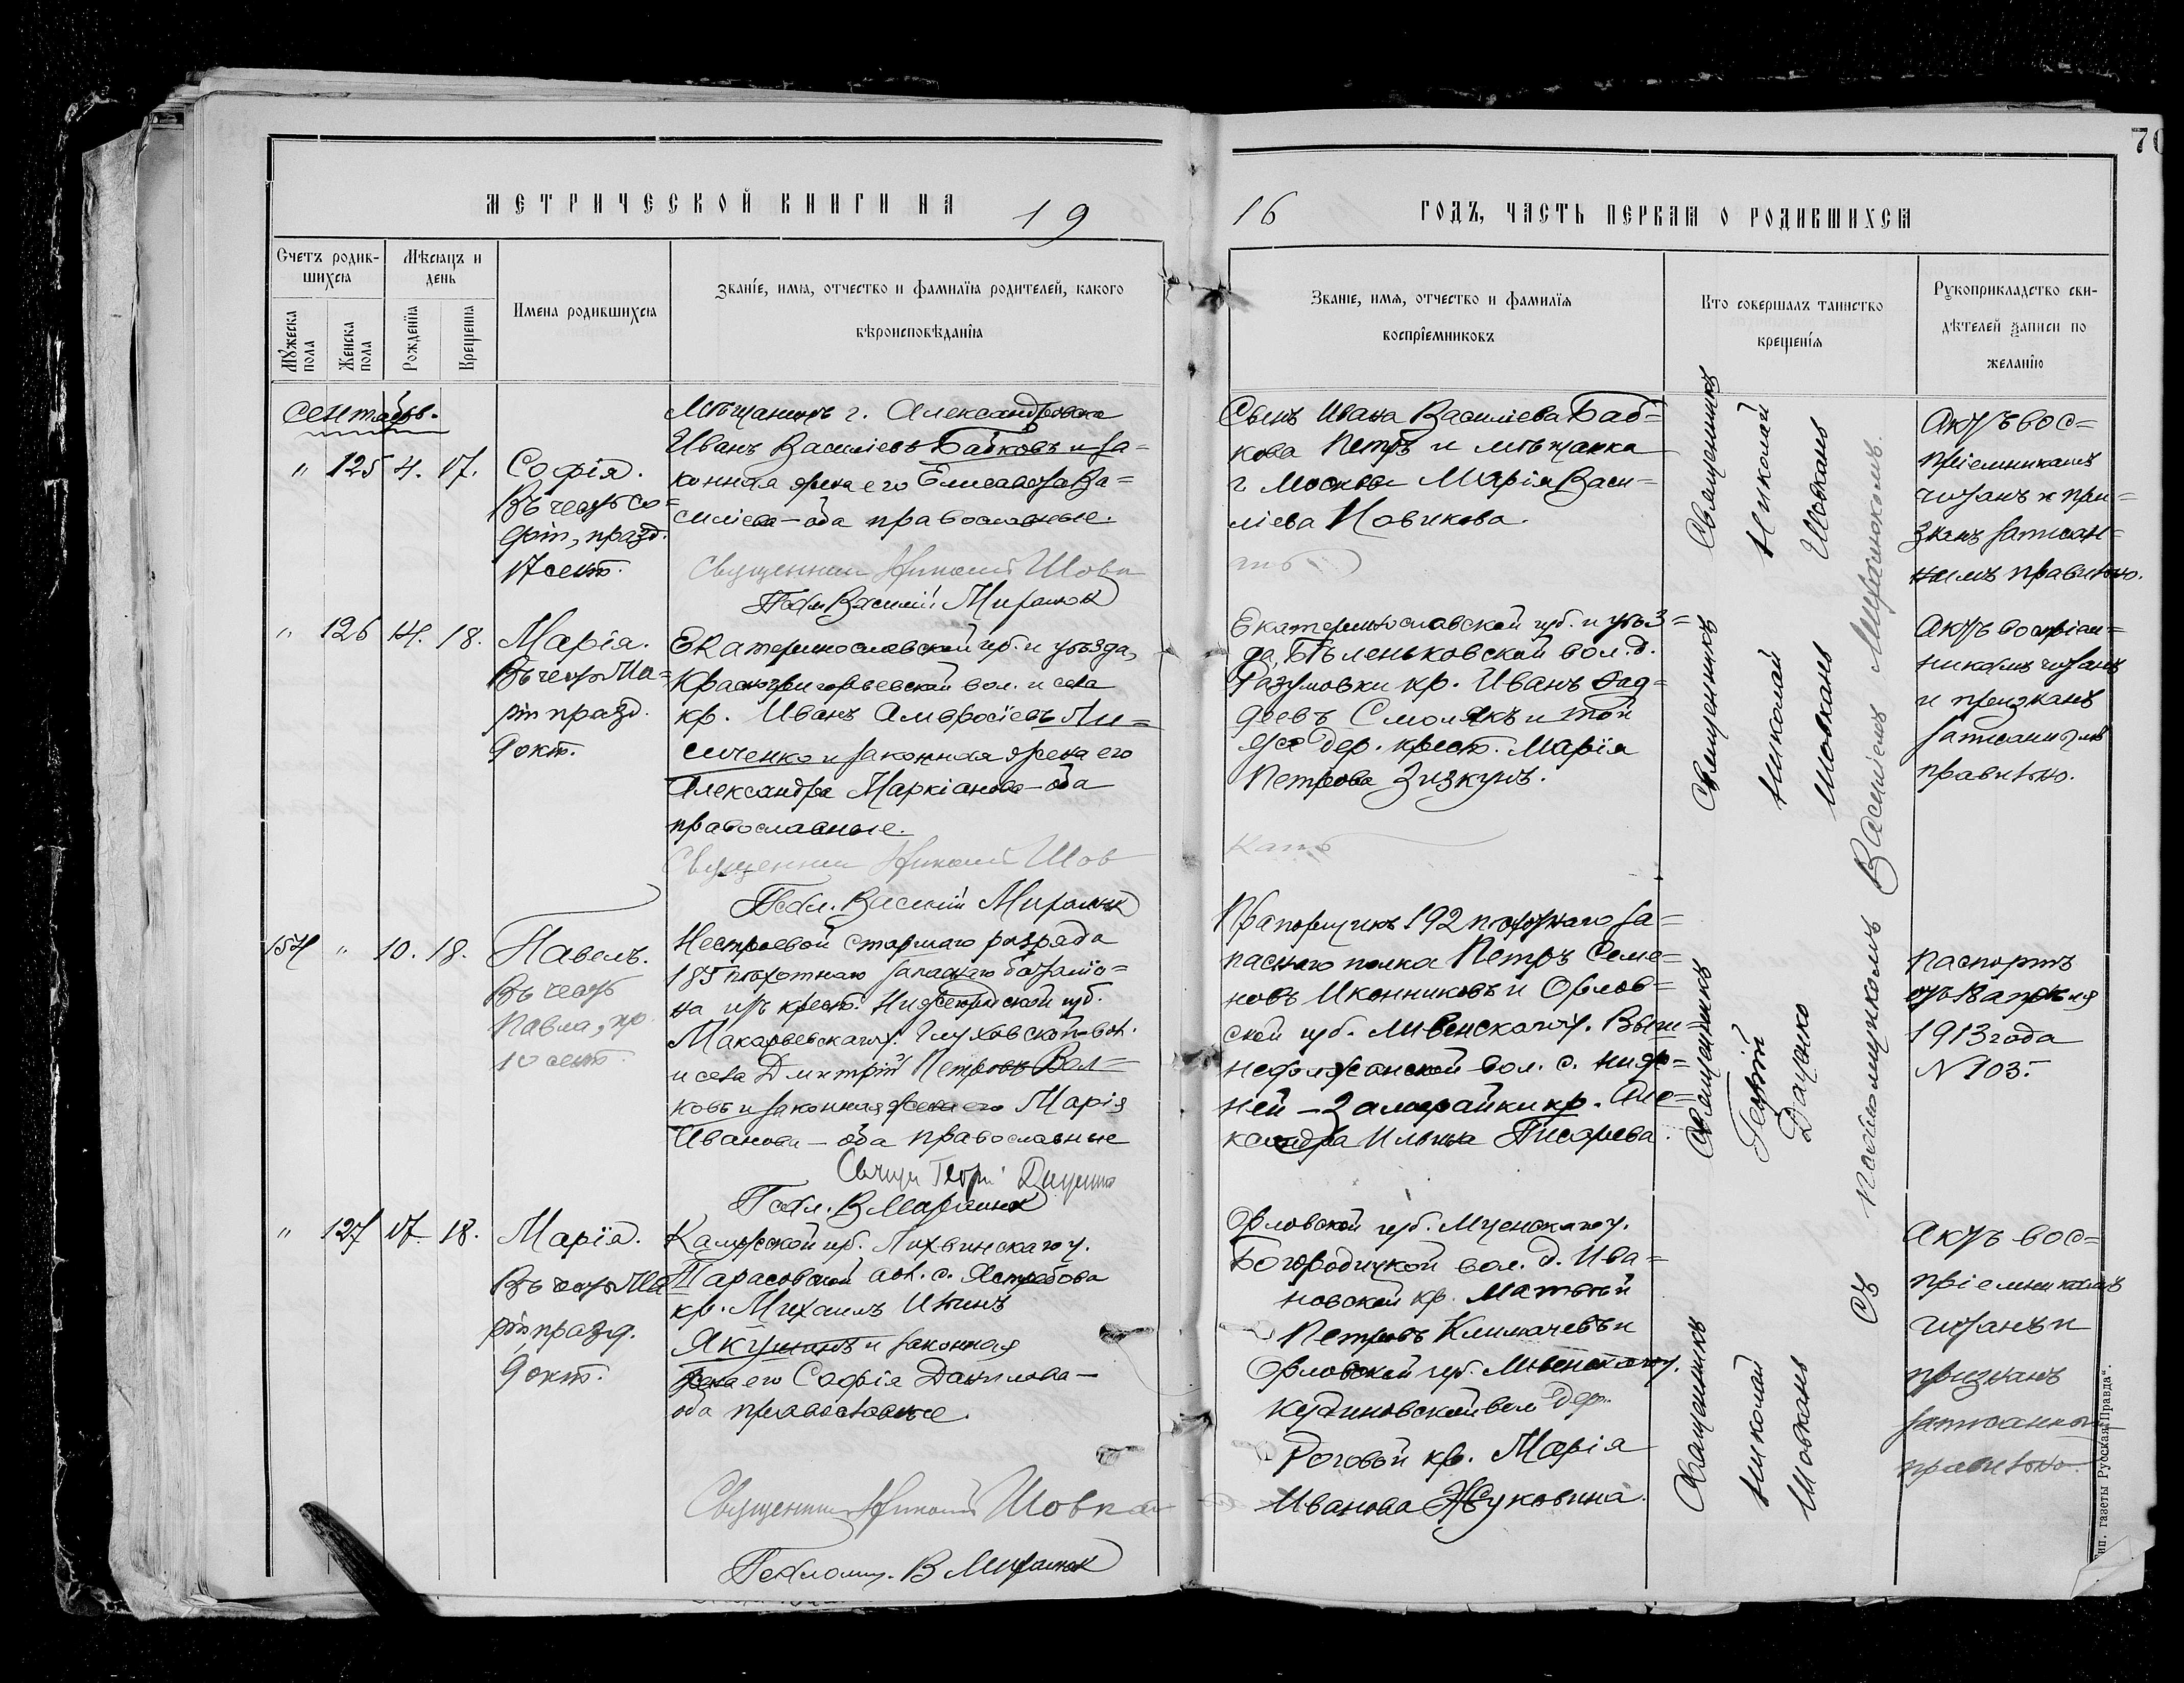 70
МЕТРИЧЕСКОЙ КНИГИ НА 19
16 ГОДЪ, ЧАСТЬ ПЕРВАЯ О РОДИВШИХСЯ
Счетъ родив-
шихся
Мѣсяцъ и
день
Мужеска пола
Женска пола
Рожденія
Крещенія
Имена родившихся
Званіе, имя, отчество и фамилія родителей, какого
вѣроисповѣданія
Званіе, имя, отчество и фамилія
воспріемниковъ
Кто совершалъ таинство
крещенія
Рукоприкладство сви-
дѣтелей записи по
желанію
Сентябрь.
" 125 4. 17.
Софія.
Въ честь Со=
фіи, празд.
17 сент.
Мѣщанинъ г. Александровска
Иванъ Василіевъ Бабковъ и за=
конная жена его Елисавета Ва=
силіева - оба православные.
Священник Николай Шовкан
Псал. Василій Миранюк
Сынъ Ивана Василіева Баб=
кова Петръ и мѣщанка
г. Москвы Марія Васи=
ліева Новикова.
Священникъ
Николай
Шовкань
Актъ вос=
пріемникамъ
читанъ и при=
знанъ записан=
нымъ правильно.
" 126 14. 18.
Марія.
Въ честь Ма=
ріи празд.
9 окт.
Екатеринославской губ. и уѣзда,
Красногригорьевской вол. и села
кр. Иванъ Амвросіевъ Ли=
сиченко и законная жена его
Александра Маркіанова - оба
православные.
Священник Николай Шов
Псал. Василій Миранюк
кань
Екатеринославской губ. и уѣз=
да, Бѣленьковской вол. д.
Разумовки кр. Иванъ Фад=
деевъ Смолякъ и той
же дер. крест. Марія
Петрова Зизкунъ.
Священникъ
Николай
Шовкань
Актъ воспріем=
никамъ читанъ
и признанъ
записаннымъ
правильно.
154 " 10. 18.
Павелъ.
Въ честь
Павла, пр.
10 сент.
Нестроевой старшаго разряда
185 пѣхотнаго запаснаго баталіо=
на изъ крест. Нижегородской губ.
Макарьевскаго у. Глуховской вол.
и села Димитрій Петровъ Вол=
ковъ и законная жена его Марія
Иванова - оба православные
Свящ. Георг. Даценко
Псал. В Миранюк
Прапорщикъ 192 пѣхотнаго за=
паснаго полка Петръ Семе=
новъ Иконниковъ и Орлов=
ской губ. Ливенскаго у.
вол. с. Ниж=
ней - кр. Але=
ксандра Ильина Писарева.
Священникъ
Георгій
Даценко
Паспортъ
отъ 18 апрѣля
1913 года
N 103.
" 127 17. 18.
Марія.
Въ честь Ма
ріи празд.
9 окт.
Калужской губ. Лихвинскаго у.
Тарасовской вол. с. Ястребова
кр. Михаилъ Ильинъ
Якушинъ и законная
жена его Софія Данилова -
оба православные.
Священник Николай Шовкан
Псаломщ. В Миранюк
Орловской губ. Мценскаго у.
Богородицкой вол. д. Ива=
новской кр. Матѳей
Петровъ Климачевъ и
Орловской губ. Ливенскаго у.
Кудиновской вол дер.
Роговой кр. Марія
Иванова Жуковина.
Священникъ
Николай
Шовкань
Актъ вос=
пріемникамъ
читанъ и
признанъ
записаннымъ
правильно.
Съ псаломщикомъ Василіемъ Миранюкомъ.
Тип. газеты „Русская Правда".